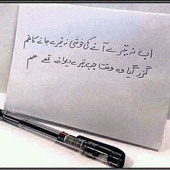 اب نہ تیرے آنے کی خوشی نہ تیرے جانے کا غم
گزر گیا وہ وقت جب تیرے دیوانے تھے ہم